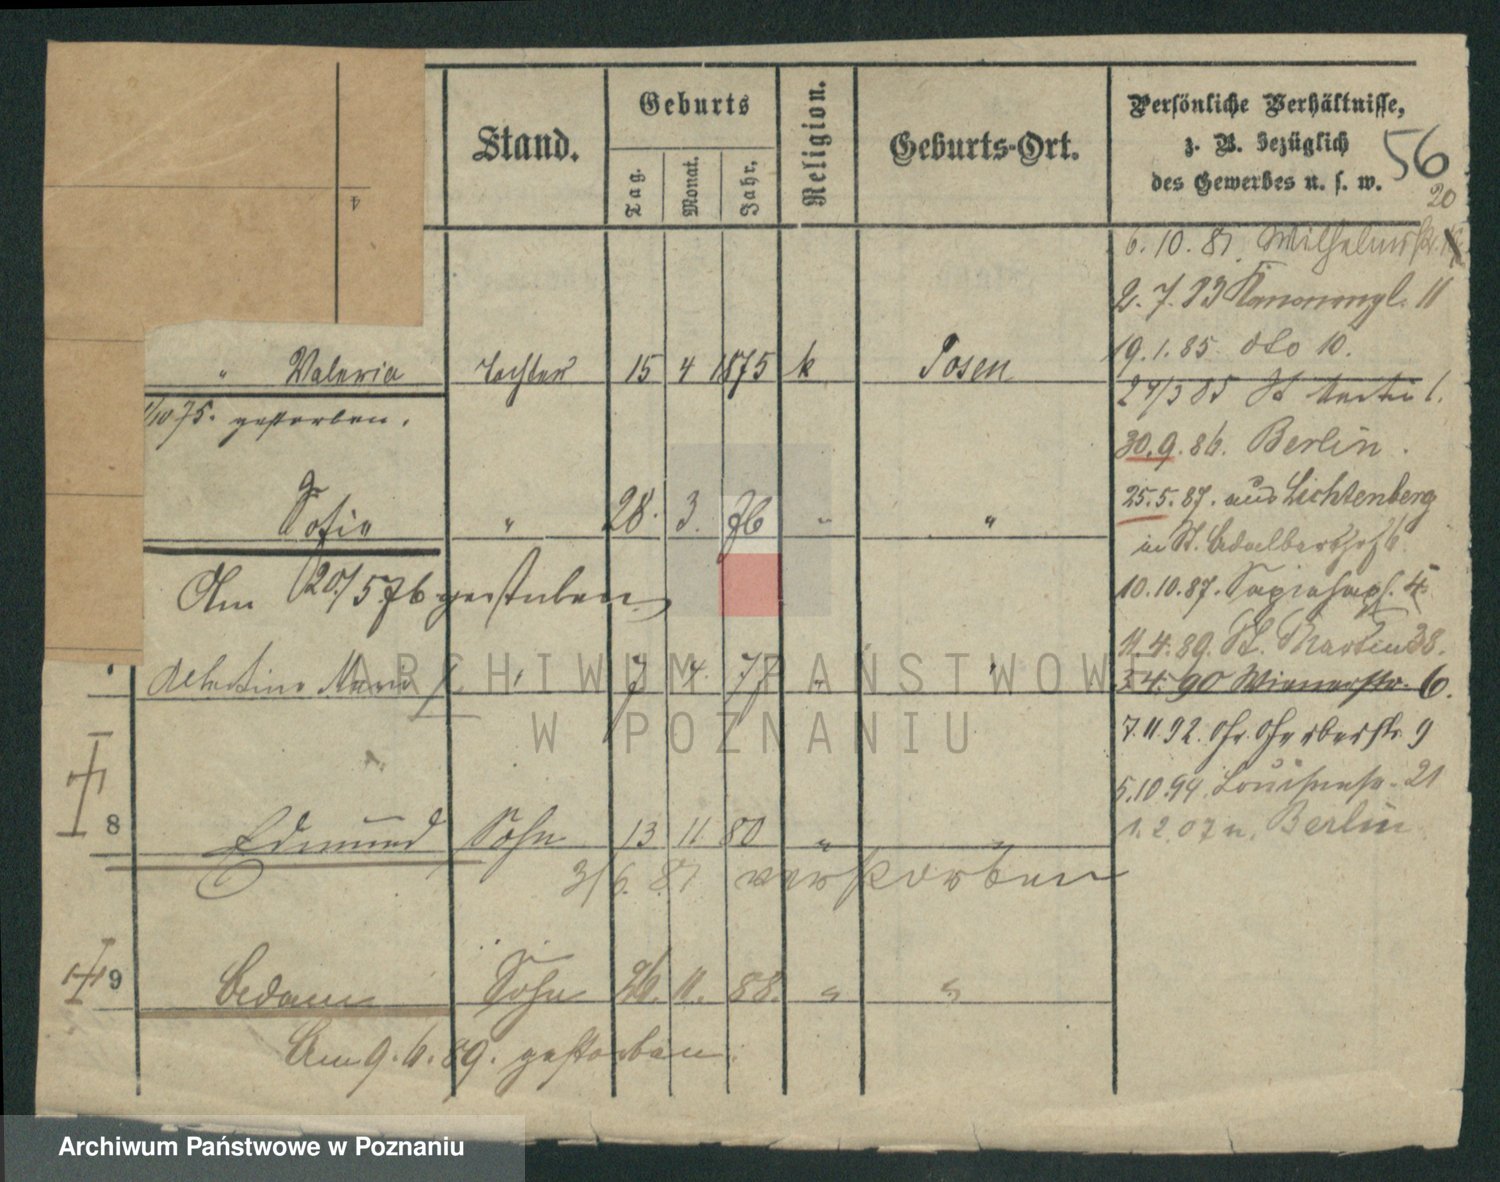 Stand.
Geburts
Tag.
Monat.
Jahr.
Religion.
Geburts-Ort.
Persönliche Verhältnisse,
z. B. bezüglich
des Gewerbes u. s. w.
56
20
" Valeria Tochter 15 4 1875 k Posen
1/10 75. gestorben.
Sofie " 28. 3. 76 " "
Am 20/5 76 gestorben
Marie " 7 4. 77 " "
8 Edmund Sohn 13 11. 80 "
3/6. 81 verstorben
9 Adam Sohn 26. 11. 88. " "
Am 9. 6. 89. gestorben.
6. 10. 81. Wilhelmstr.
2. 7. 83 Kanonenpl. 11
19. 1. 85 dto 10.
27/3 85 St Martin 6.
30. 9. 86. Berlin.
25. 5. 87. aus Lichtenberg
in St. Adalbertstr.
10. 10. 87. Sapiehapl. 4
11. 4. 89. St. Martin 38.
4. 90 Wienerstr. 6.
7. 11 92. Gr. Gerberstr. 9
5. 10. 94. Louisenstr. 21
1. 2. 07 n. Berlin
ARCHIWUM PAŃSTWOWE
W POZNANIU
Archiwum Państwowe w Poznaniu